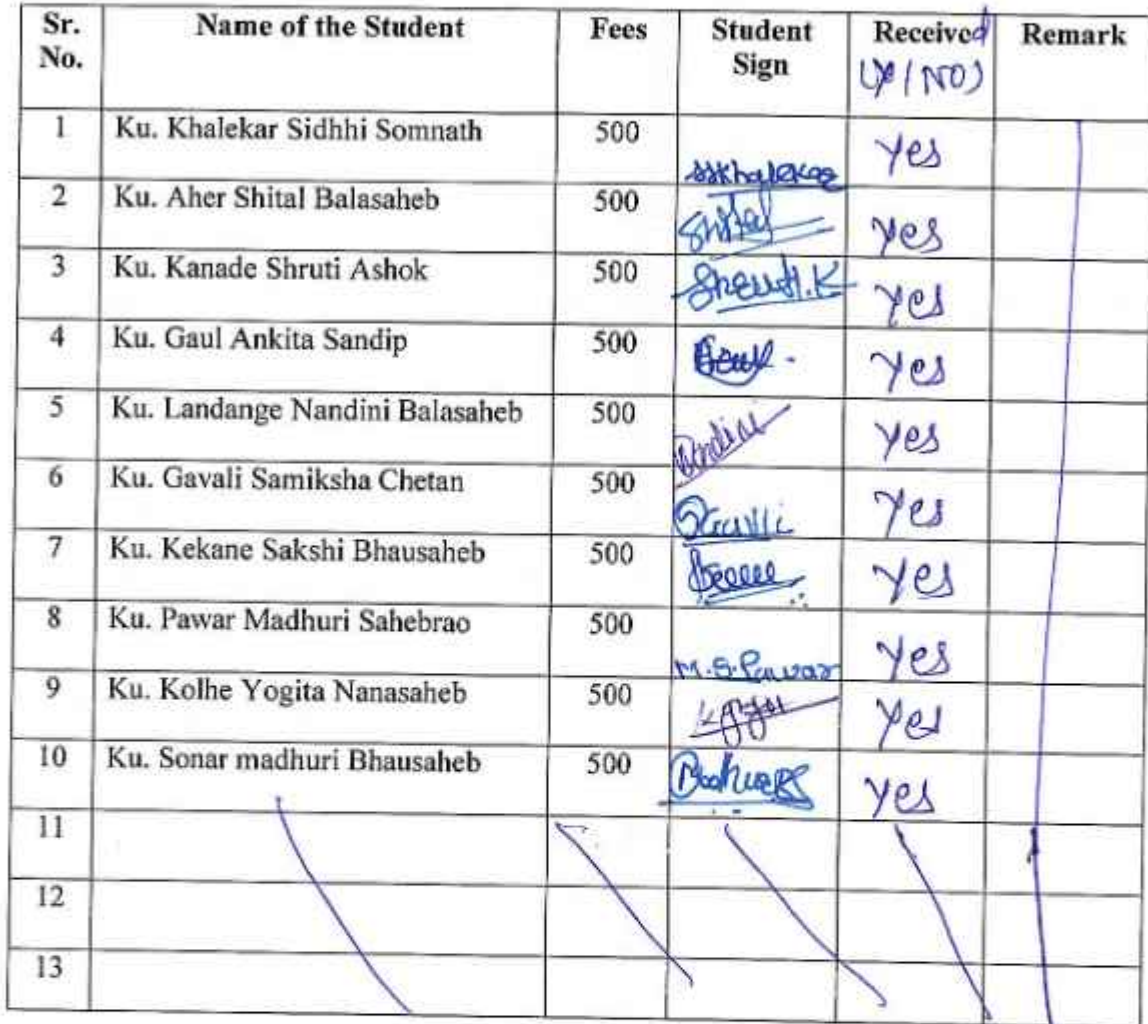 Sr. No. Name of the Student Fees Student Sign Received (Y/NO) Remark
1 Ku. Khalekar Sidhhi Somnath 500 SSKhalekar Yes
2 Ku. Aher Shital Balasaheb 500 Shital Yes
3 Ku. Kanade Shruti Ashok 500 Shruti.K Yes
4 Ku. Gaul Ankita Sandip 500 Yes
5 Ku. Landange Nandini Balasaheb 500 Nandini Yes
6 Ku. Gavali Samiksha Chetan 500 Yes
7 Ku. Kekane Sakshi Bhausaheb 500 Yes
8 Ku. Pawar Madhuri Sahebrao 500 M.S.Pawar Yes
9 Ku. Kolhe Yogita Nanasaheb 500 Yes
10 Ku. Sonar madhuri Bhausaheb 500 Yes
11
12
13